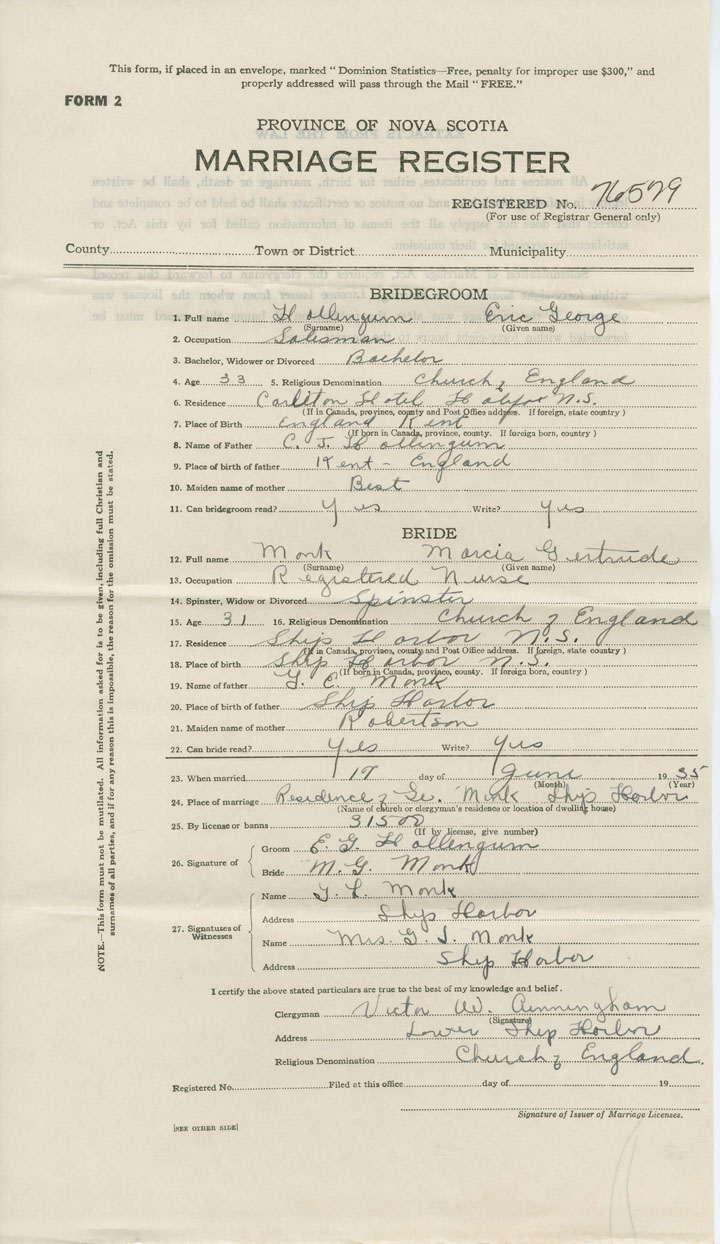 This form, if placed in an envelope, marked "Dominion Statistics—Free, penalty for improper use $300," and
properly addressed will pass through the Mail "FREE."
FORM 2
PROVINCE OF NOVA SCOTIA
MARRIAGE REGISTER
REGISTERED No. 76579
(For use of Registrar General only)
County Town or District Municipality
BRIDEGROOM
1. Full name Hollengum Eric George
(Surname) (Given name)
2. Occupation Salesman
3. Bachelor, Widower or Divorced Bachelor
4. Age 33 5. Religious Denomination Church of England
6. Residence Carlton Hotel Halifax N.S.
(If in Canada, province, county and Post Office address. If foreign, state country)
7. Place of Birth England Kent
(If born in Canada, province, county. If foreign born, country)
8. Name of Father C. J. Hollengum
9. Place of birth of father Kent - England
10. Maiden name of mother Best
11. Can bridegroom read? Yes Write? Yes
BRIDE
12. Full name Monk Marcia Gertrude
(Surname) (Given name)
13. Occupation Registered Nurse
14. Spinster, Widow or Divorced Spinster
15. Age 31 16. Religious Denomination Church of England
17. Residence Ship Harbor N.S.
(If in Canada, province, county and Post Office address. If foreign, state country)
18. Place of birth Ship Harbor N.S.
(If born in Canada, province, county. If foreign born, country)
19. Name of father G. E. Monk
20. Place of birth of father Ship Harbor
21. Maiden name of mother Robertson
22. Can bride read? Yes Write? Yes
23. When married 19 day of June 1935
(Month) (Year)
24. Place of marriage Residence of Geo. Monk Ship Harbor
(Name of church or clergyman's residence or location of dwelling house)
25. By license or banns 31500
(If by license, give number)
26. Signature of
Groom E. G. Hollengum
Bride M. G. Monk
27. Signatures of Witnesses
Name Monk
Address Ship Harbor
Name Mrs. G. Monk
Address Ship Harbor
I certify the above stated particulars are true to the best of my knowledge and belief.
Clergyman Victor W. Cunningham
(Signature)
Address Lower Ship Harbor
Religious Denomination Church of England.
Registered No. Filed at this office day of 19
Signature of Issuer of Marriage Licenses.
[SEE OTHER SIDE]
NOTE.—This form must not be mutilated. All information asked for is to be given, including full Christian and
surnames of all parties, and if for any reason this is impossible, the reason for the omission must be stated.